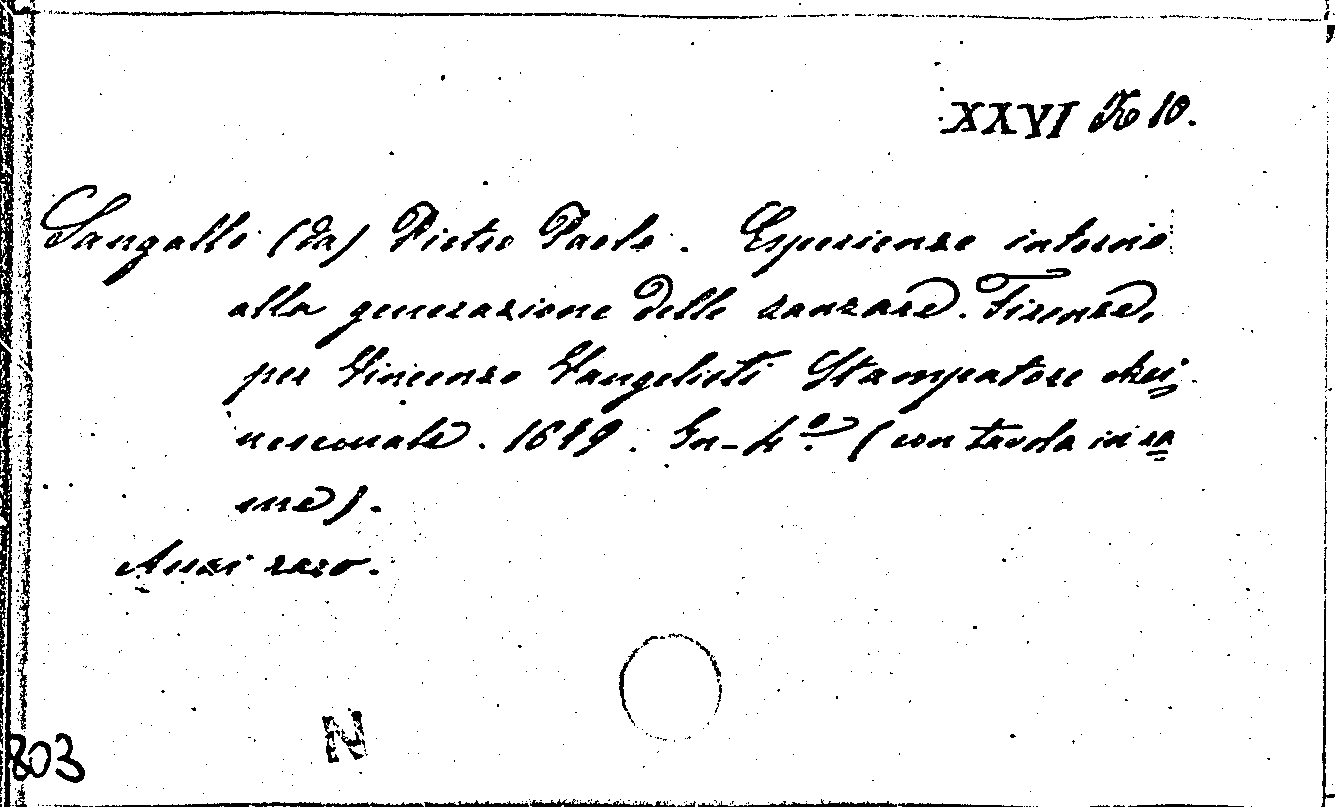 XXVI K 10.
Sangallo (da) Pietro Paolo. Esperienze intorno
alla generazione delle zanzare. Firenze,
per Vincenzo Vangelisti Stampatore Arci
vescovale. 1679. In-4.º (con tavola in ra
me).
Assai raro.
N
803